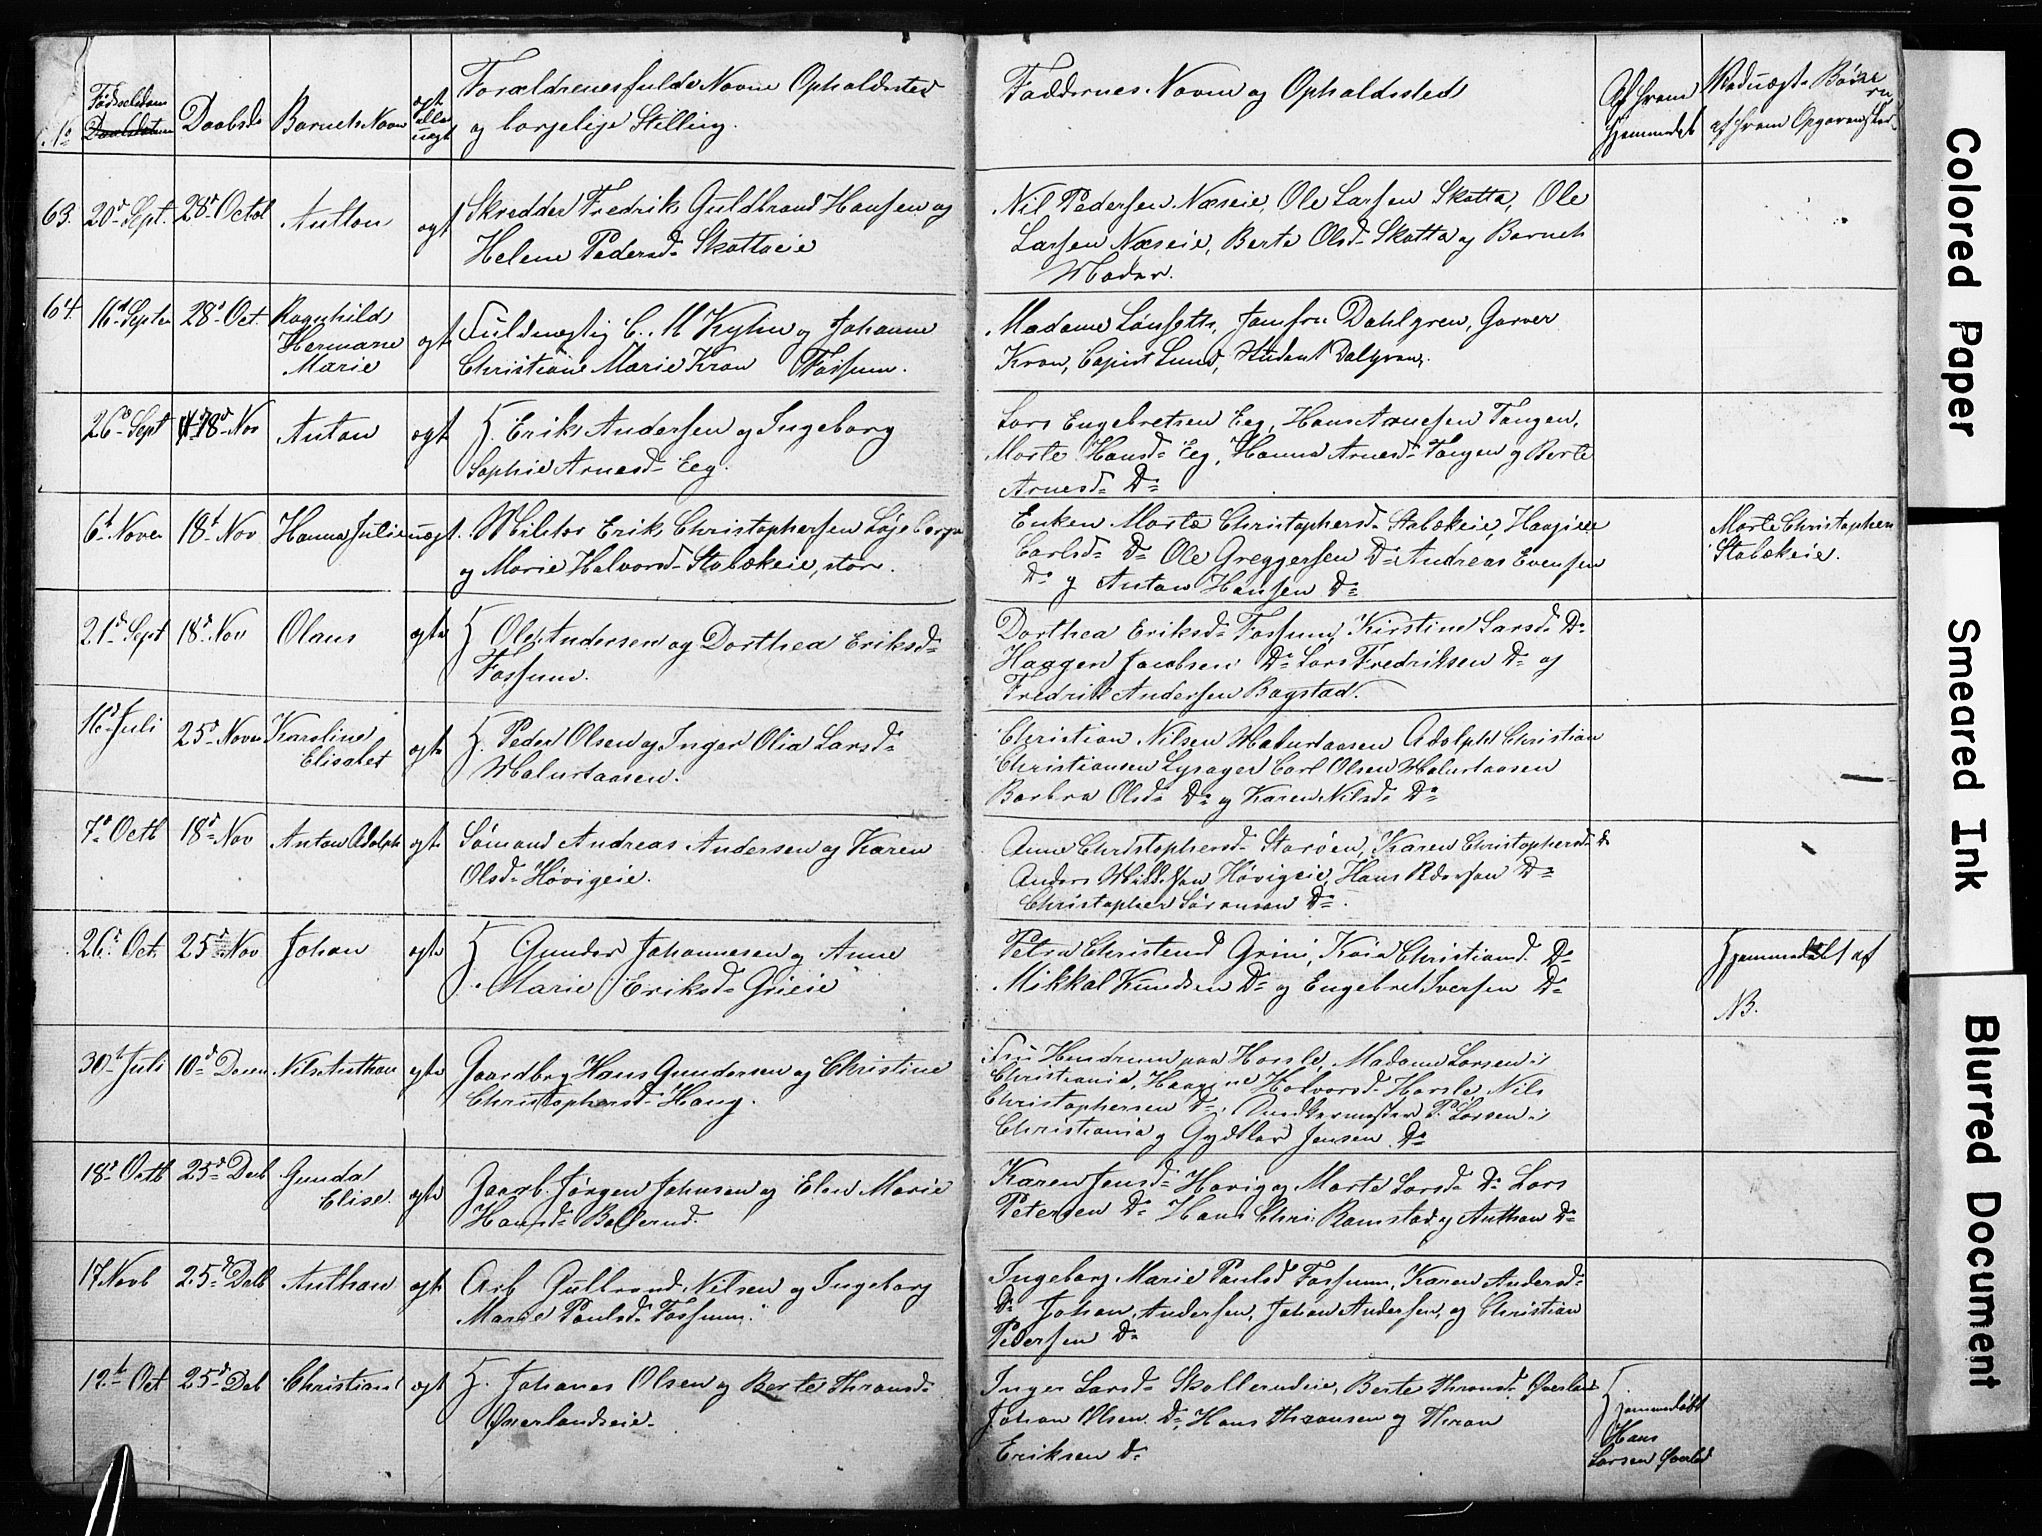 No
Fødselsdatum
Daabsdatum
Daabsd
Barnets Navn
ægt
eller
uægt
Forældrenes fulde Navne Opholdssted
og borgelige Stilling.
Faddernes Navne og Opholdssted
Af hvem
hjemmedøbt
Ved uægte Børn
af hvem Opgaven sker.
63. 20d Sept. 28d Octob Antton ægt
Skredder Fredrik Guldbrand Hansen og
Helene Pedersd Skotteeie
Nil Pedersen Næseie, Ole Larsen Skotta, Ole
Larsen Næseie, Berte Olsd Skotta og Barnets
Moder.
64. 16d Septe 28d Oct.
Ragnhild
Hermane
Marie
ægt
Fuldmægtig C. M Kyhn og Johanne
Christiane Marie Kran Fossum.
Madame Lønseth, Jomfru Dahlgren, Garver
Kran, Copist Lund, Student Dalgren,
26d Sept 18d Nov Anton ægt
H. Erik Andersen og Ingeborg
Sophie Arnesd Eeg.
Lars Engebretsen Eeg, Hans Arnesen Tangen,
Marte Hansd Eeg, Hanna Arnesd Tangen og Berte
Arnesd Do
6t Nover 18d Nov Hanna Julie uægt.
Militær Erik Christophersen
og Marie Halvorsd Stabækeie,
Enken Marte Christophersd Stabækeie, Haagine
Carlsd Do Ole Greggersen Do Andreas Evensen
Do og Anton Hansen Do
Marte Christophers
Stabækeie.
21d Sept 18d Nov Olaus ægte
H Ole Andersen og Dorthea Eriksd
Fossum.
Dorthea Eriksd Fossum, Kirstine Larsd Do
Haagen Jacobsen Do Lars Fredriksen Do og
Fredrik Andersen Bagstad.
16d Juli 25d Nove Karoline
Elisabet
ægte
H. Peder Olsen og Inger Olia Larsd
Malurtaasen.
Christian Nilsen Malurtaasen Adolph Christian
Christiansen Lysager Carl Olsen Malurtaasen
Barbra Olsd Do og Karen Nilsd Do
7d Octb 18d Nov Anton Adolph ægte
Sømand Andreas Andersen og Karen
Olsd Høvigeie.
Anne Christophersd Storøen, Karen Christophersd Do
Anders Høvigeie, Hans Pedersen Do
Christopher Sørensen Do.
26d Oct. 25d Nov Johan ægte
H Gunder Johannesen og Anne
Marie Eriksd Grieie
Petra Christensd Grini, Kari Christiansd Do
Mikkal Knudsen Do og Engebret Iversen Do
Hjemmedøbt af
NB.
30t Juli 10d Decem Nils Anthon ægte
Gaardbrg Hans Gundersen og Christine
Christophersd Haug.
Fru Hendrum paa Hasle Madame Larsen i
Christiania, Haagine Halvorsd Hasle, Nils
Christophersen Do, P. Larsen i
Christiania og Jensen Do
18d Octb 25d Decb Gunda
Elise.
ægte
Gaarb. Jørgen Johnsen og Elen Marie
Hansd Ballerud.
Karen Jensd Høvig og Marte Larsd Do Lars
Petersen Do Hans Chri Ramstad og Anthon Do
17 Novb 25d Decb Anthon ægt
Arb Gulbrand Nilsen og Ingeborg
Marie Paulsd Fossum.
Ingeborg Marie Paulsd Fossum, Karen Andersd
Do Johan Andersen, Johan Andersen, og Christian
Pedersen Do
12t Oct 25d Deb Christian ægt
H. Johanes Olsen og Berte Thronsd
Øverlandseie.
Inger Larsd Skollerudeie, Berte Thronsd Øverland
Johan Olsen Do Hans Thronsen og Thron
Eriksen Do
Hjemmedøbt
Hans
Larsen Øverld
Colored Paper
Smeared Ink
Blurred Document